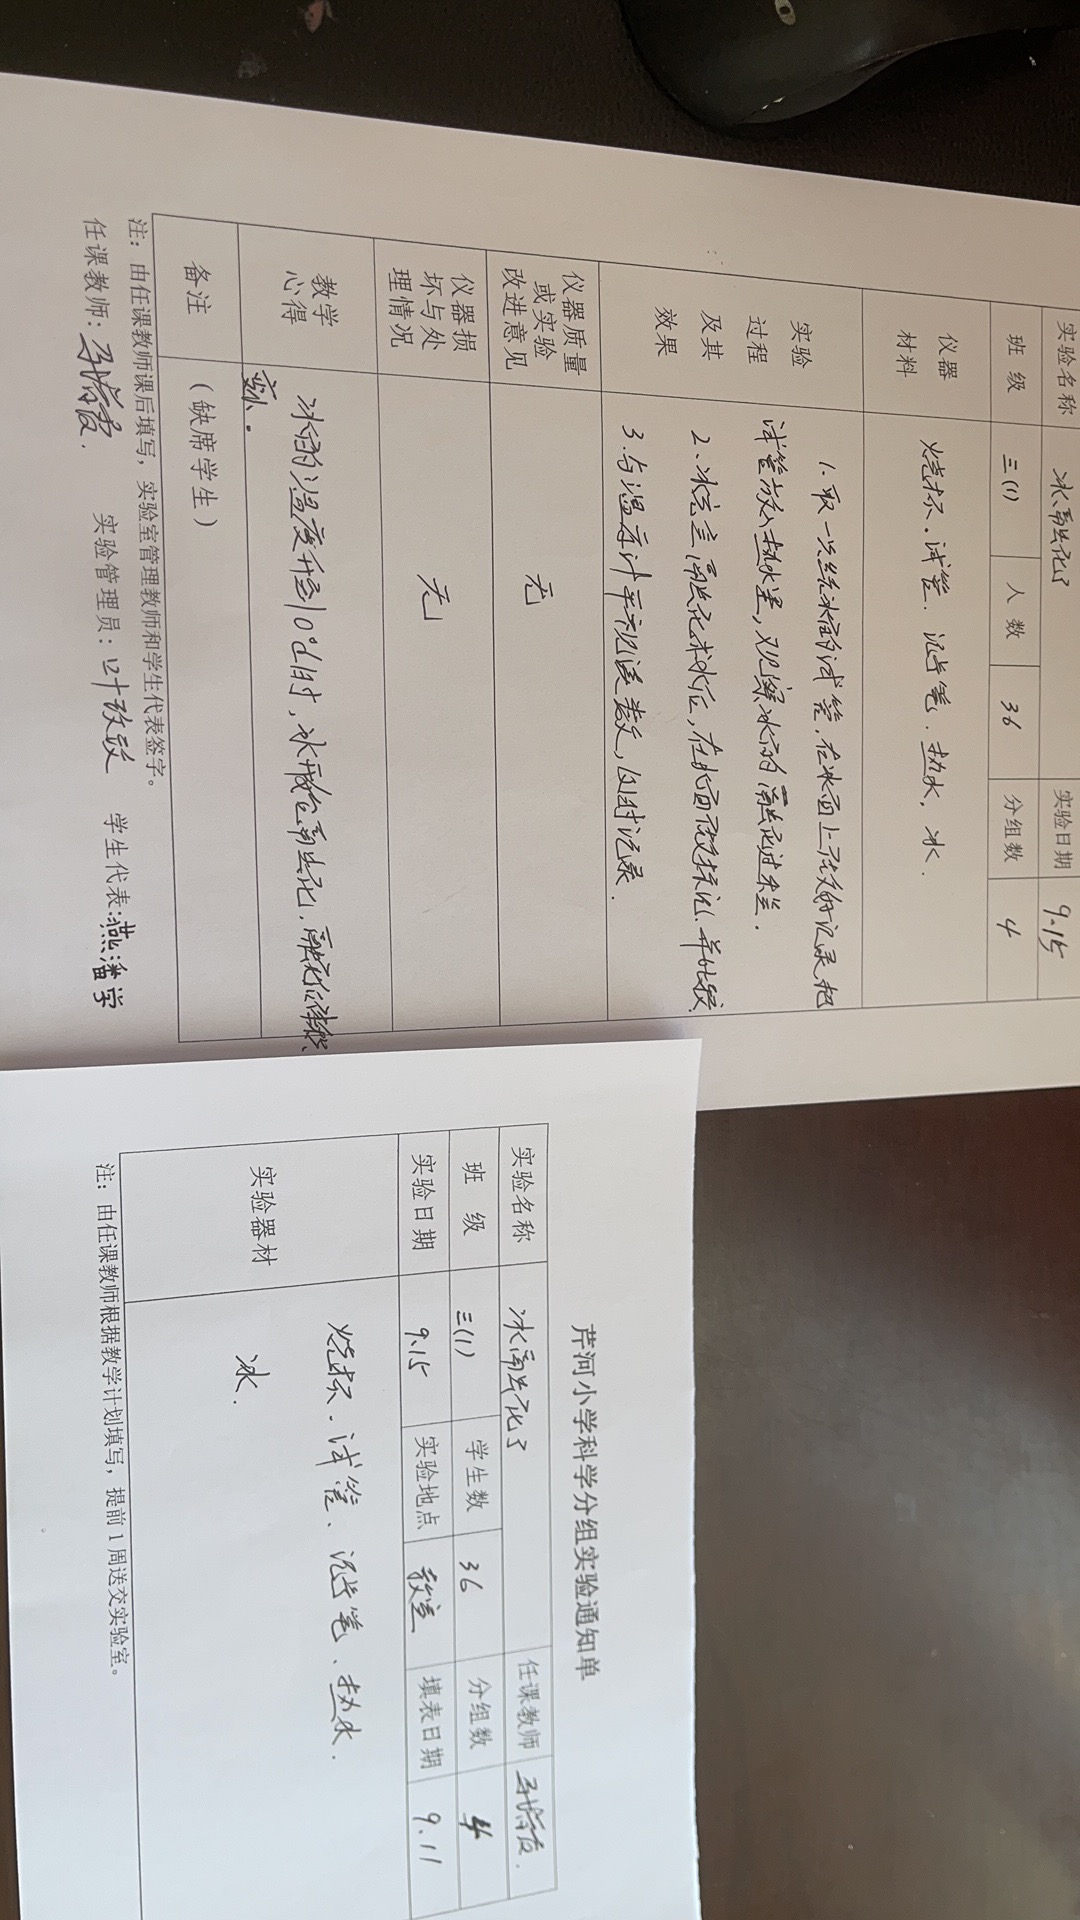 实验名称 冰融化了 实验日期 9.15
班 级 三(1) 人 数 36 分组数 4
仪器
材料
烧杯.试管.记号笔.热水.冰.
实验
过程
及其
效果
1.取一只结冰的试管,在冰面上做好记录,把
试管放入热水里,观察冰的融化过程.
2.冰完全融化成水后,在水面处标记.并比较
3.与温度计平视读数,及时记录.
仪器质量
或实验
改进意见
无
仪器损
坏与处
理情况
无
教学
心得
冰的温度升到0℃时,冰开始融化,融化后体积
变小。
备注
(缺席学生)
注:由任课教师课后填写,实验室管理教师和学生代表签字。
任课教师: 实验管理员:叶改改 学生代表:燕潘学
芹河小学科学分组实验通知单
实验名称 冰融化了 任课教师
班 级 三(1) 学生数 36 分组数 4
实验日期 9.15 实验地点 教室 填表日期 9.11
实验器材
烧杯.试管.记号笔.热水.
冰.
注:由任课教师根据教学计划填写,提前1周送交实验室。